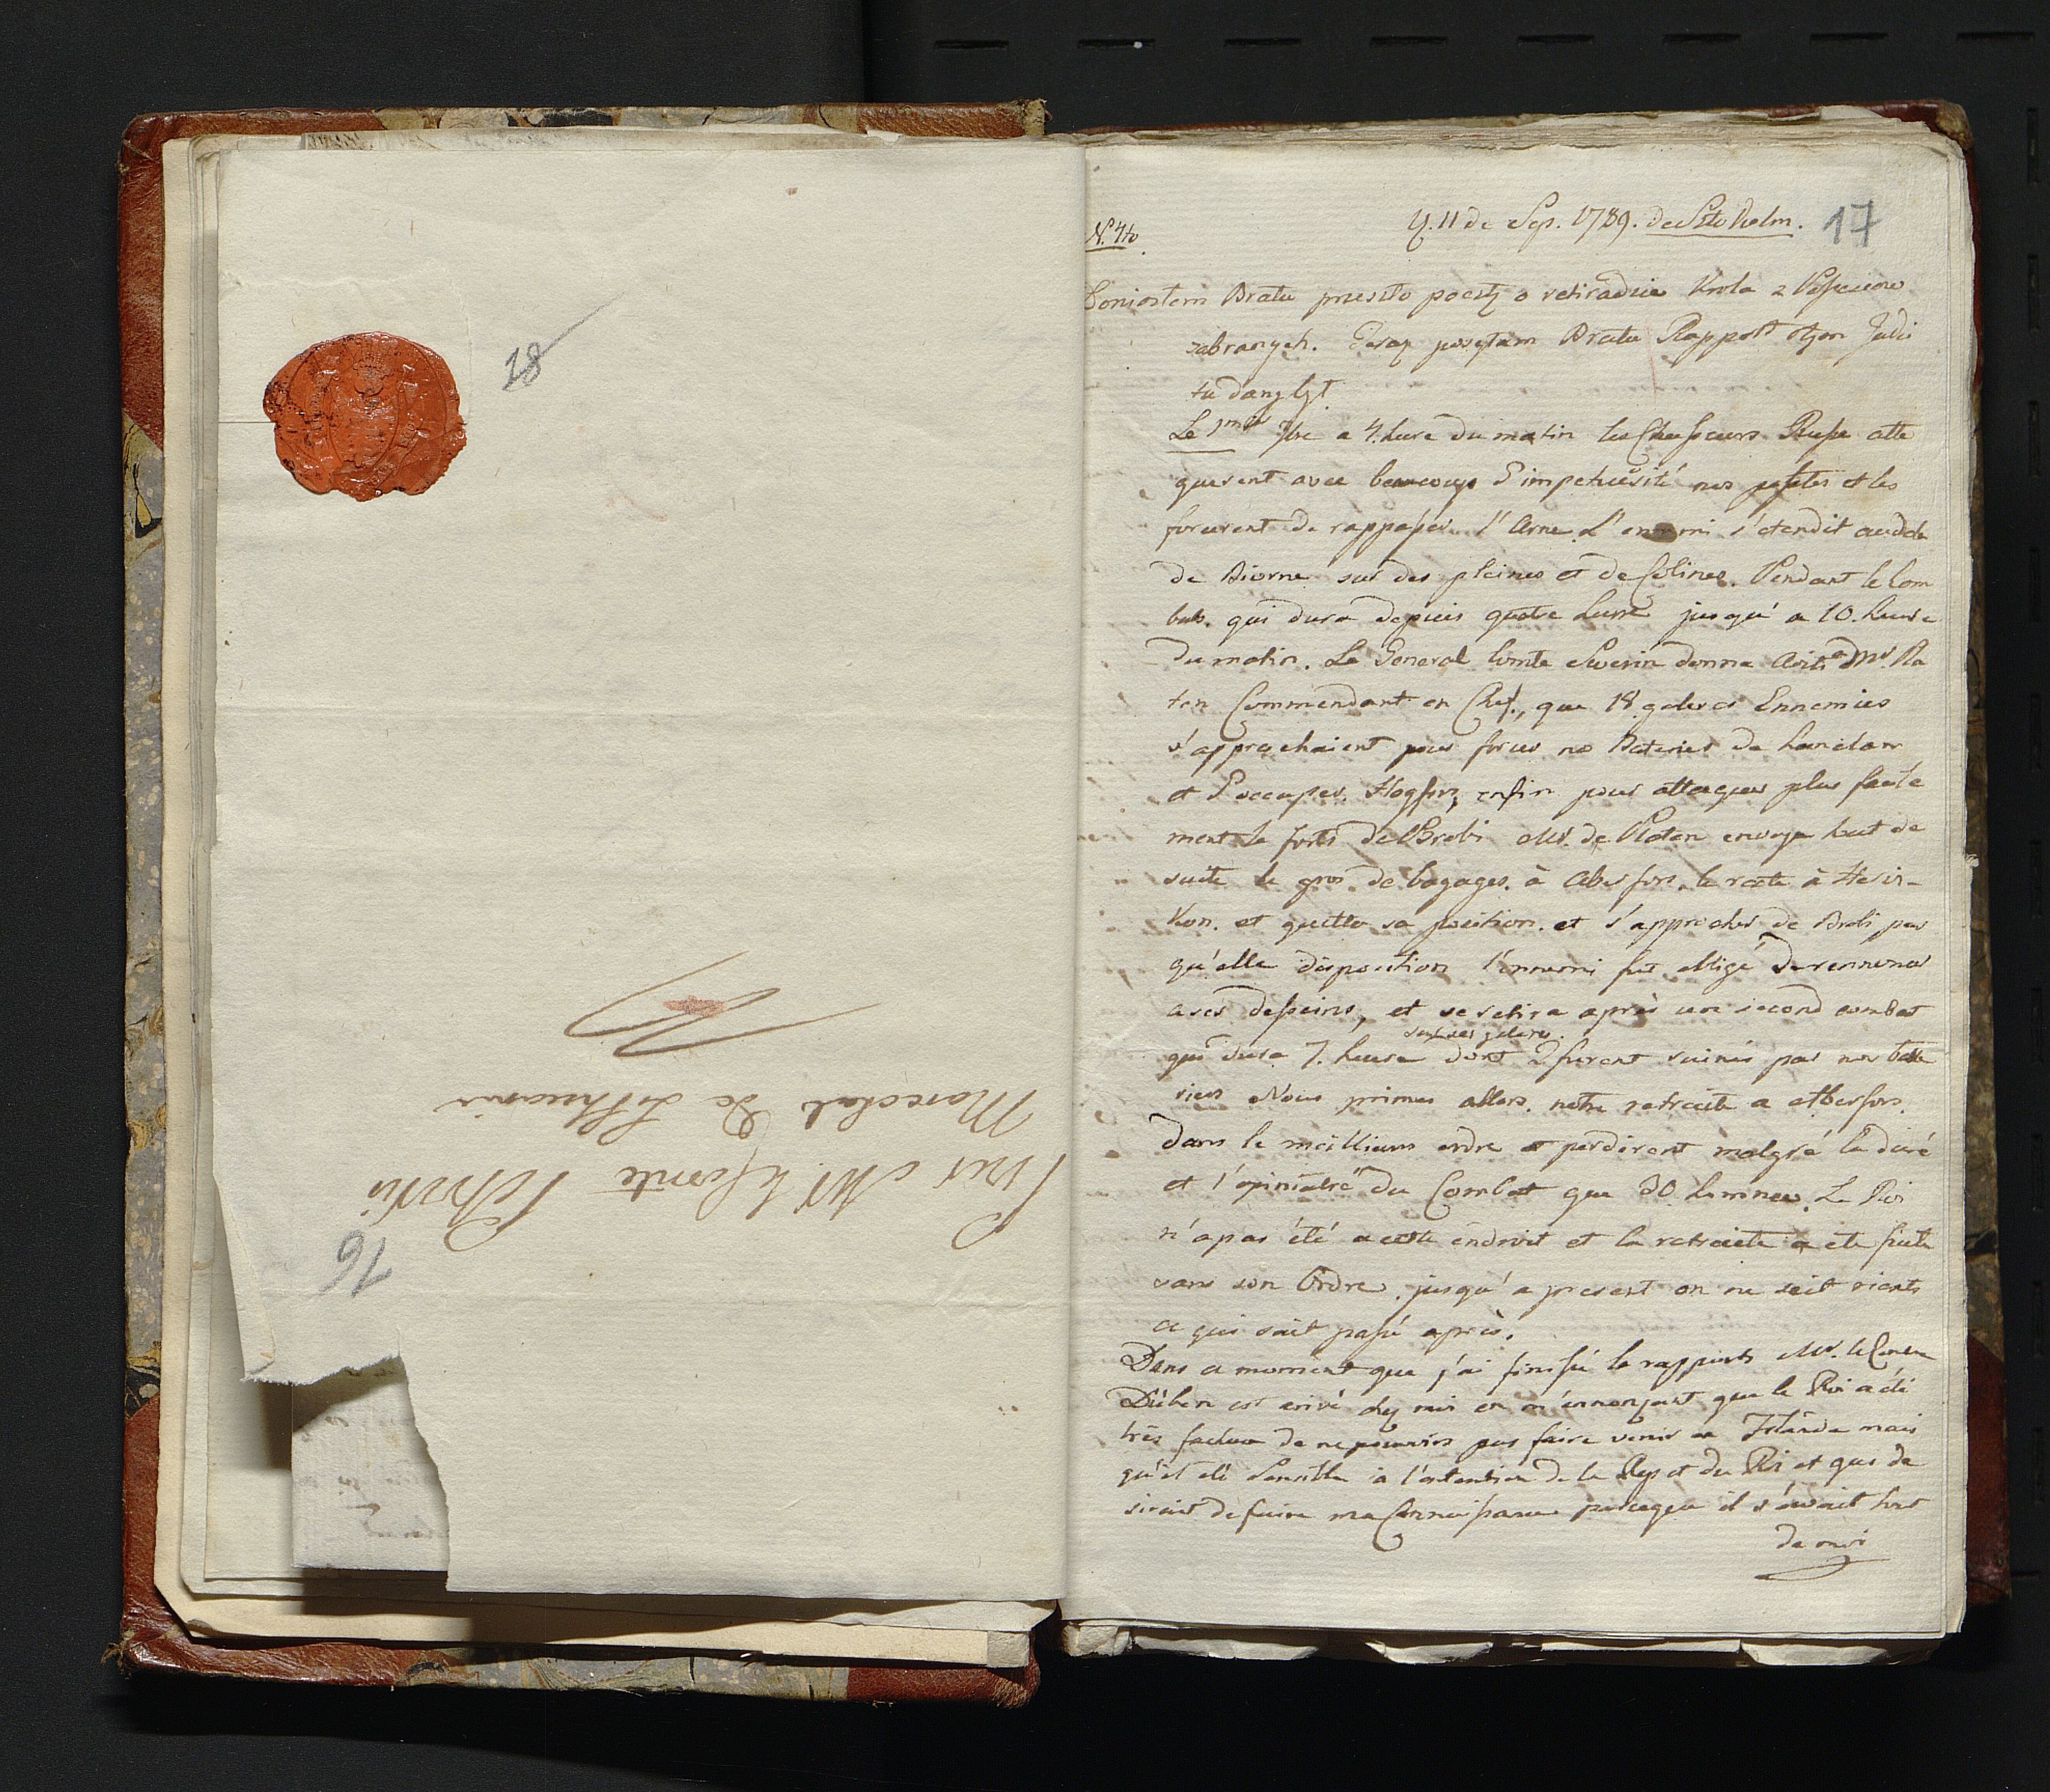 18
Pour Mr. le Comte Potocki
Marechal de Lithuanie
16
N. 4to
17
D. 11 de Sep. 1789. de Stokolm.
Doniosłem Bratu przeszło pocztą o retiradzie Krola z Possessiow
zabranych. Teraz posyłam Bratu Rapport
tu dany
Le 1me 7bre a 4. heure du matin les Chasseurs Russe atta
querent avec beaucoup d'impetuësité nos postes et les
forcerent de rappasser l'Arne. L'ennemi s'etendit audela
de Biorne sur des pleines et de Colines. Pendant le Com
bats. qui dura depuis quatre heure jusqu'a 10. heure
du matin. Le General Comte Sverin donna Avis a Mr. Pla
ten Commendant en Chef, que 18 galeres Ennemies
s'approchaient pour forcer nos Bateries de
et d'occuper Hogfors, enfin pour attaquer plus facile
ment le forts de Brobi Mr. de Platen envoya tout de
suite le gros de bagages. à Aberfors. le reste à
Kon. et quitta sa position. et s'approcha de Brobi par
qu'elle disposition l'ennemi fut obligé de renoncer
a ses desseins, et se retira après un second combat
sur ses galeres.
qui dura 7. heure dont 2 furent ruinés par nos batte
ries Nous primes allors. notre retraite a Abberfors.
dans le meillieur ordre et perdirent malgré la duré
et l'opiniatré du Combat que 30 hommes. Le Roi
n'a pas été a cette endroit et la retraite a ete faite
sans son Ordre. jusqu'a present on ne sait rients
ce qui soit passé après.
Dans ce moment que j'ai finissé le rapports Mr. le Comte
Düben est arivé chez moi en m'annonçant que le Roi a été
très facheé de ne pouvoir pas faire venir en Finlande mais
qu'il été sensible à l'attention de la Rep et du Roi et que de
sirait de faire ma Connoissance parceque il s'avait tout
de moi